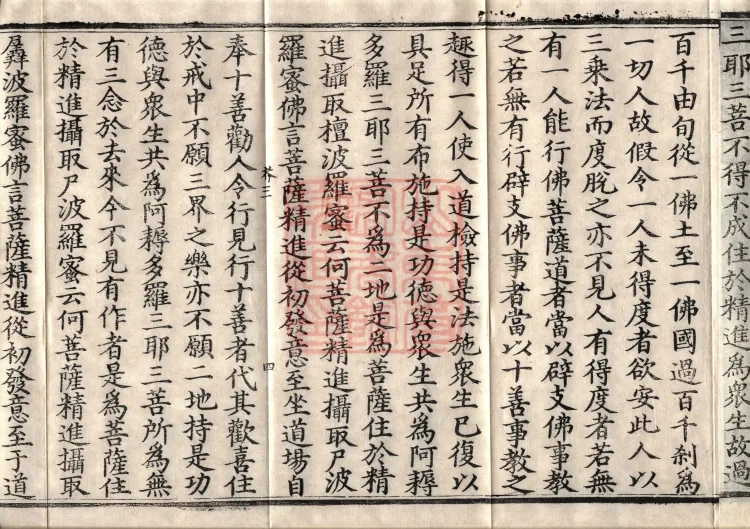 三耶三菩不得不成住於精進為衆生故過
百千由旬從一佛土至一佛國過百千剎為
一切人故假令一人未得度者欲安此人以
三乘法而度脫之亦不見人有得度者若無
有一人能行佛菩薩道者當以辟支佛事教
之若無有行辟支佛事者當以十善事教之
趣得一人使入道檢持是法施衆生已復以
具足所有布施持是功德與衆生共為阿耨
多羅三耶三菩不為二地是為菩薩住於精
進攝取檀波羅蜜云何菩薩精進攝取尸波
羅蜜佛言菩薩精進從初發意至坐道場自
芥三 四
奉十善勸人令行見行十善者代其歡喜住
於戒中不願三界之樂亦不願二地持是功
德與衆生共為阿耨多羅三耶三菩所為無
有三念於去來今不見有作者是為菩薩住
於精進攝取尸波羅蜜云何菩薩精進攝取
羼波羅蜜佛言菩薩精進從初發意至于道